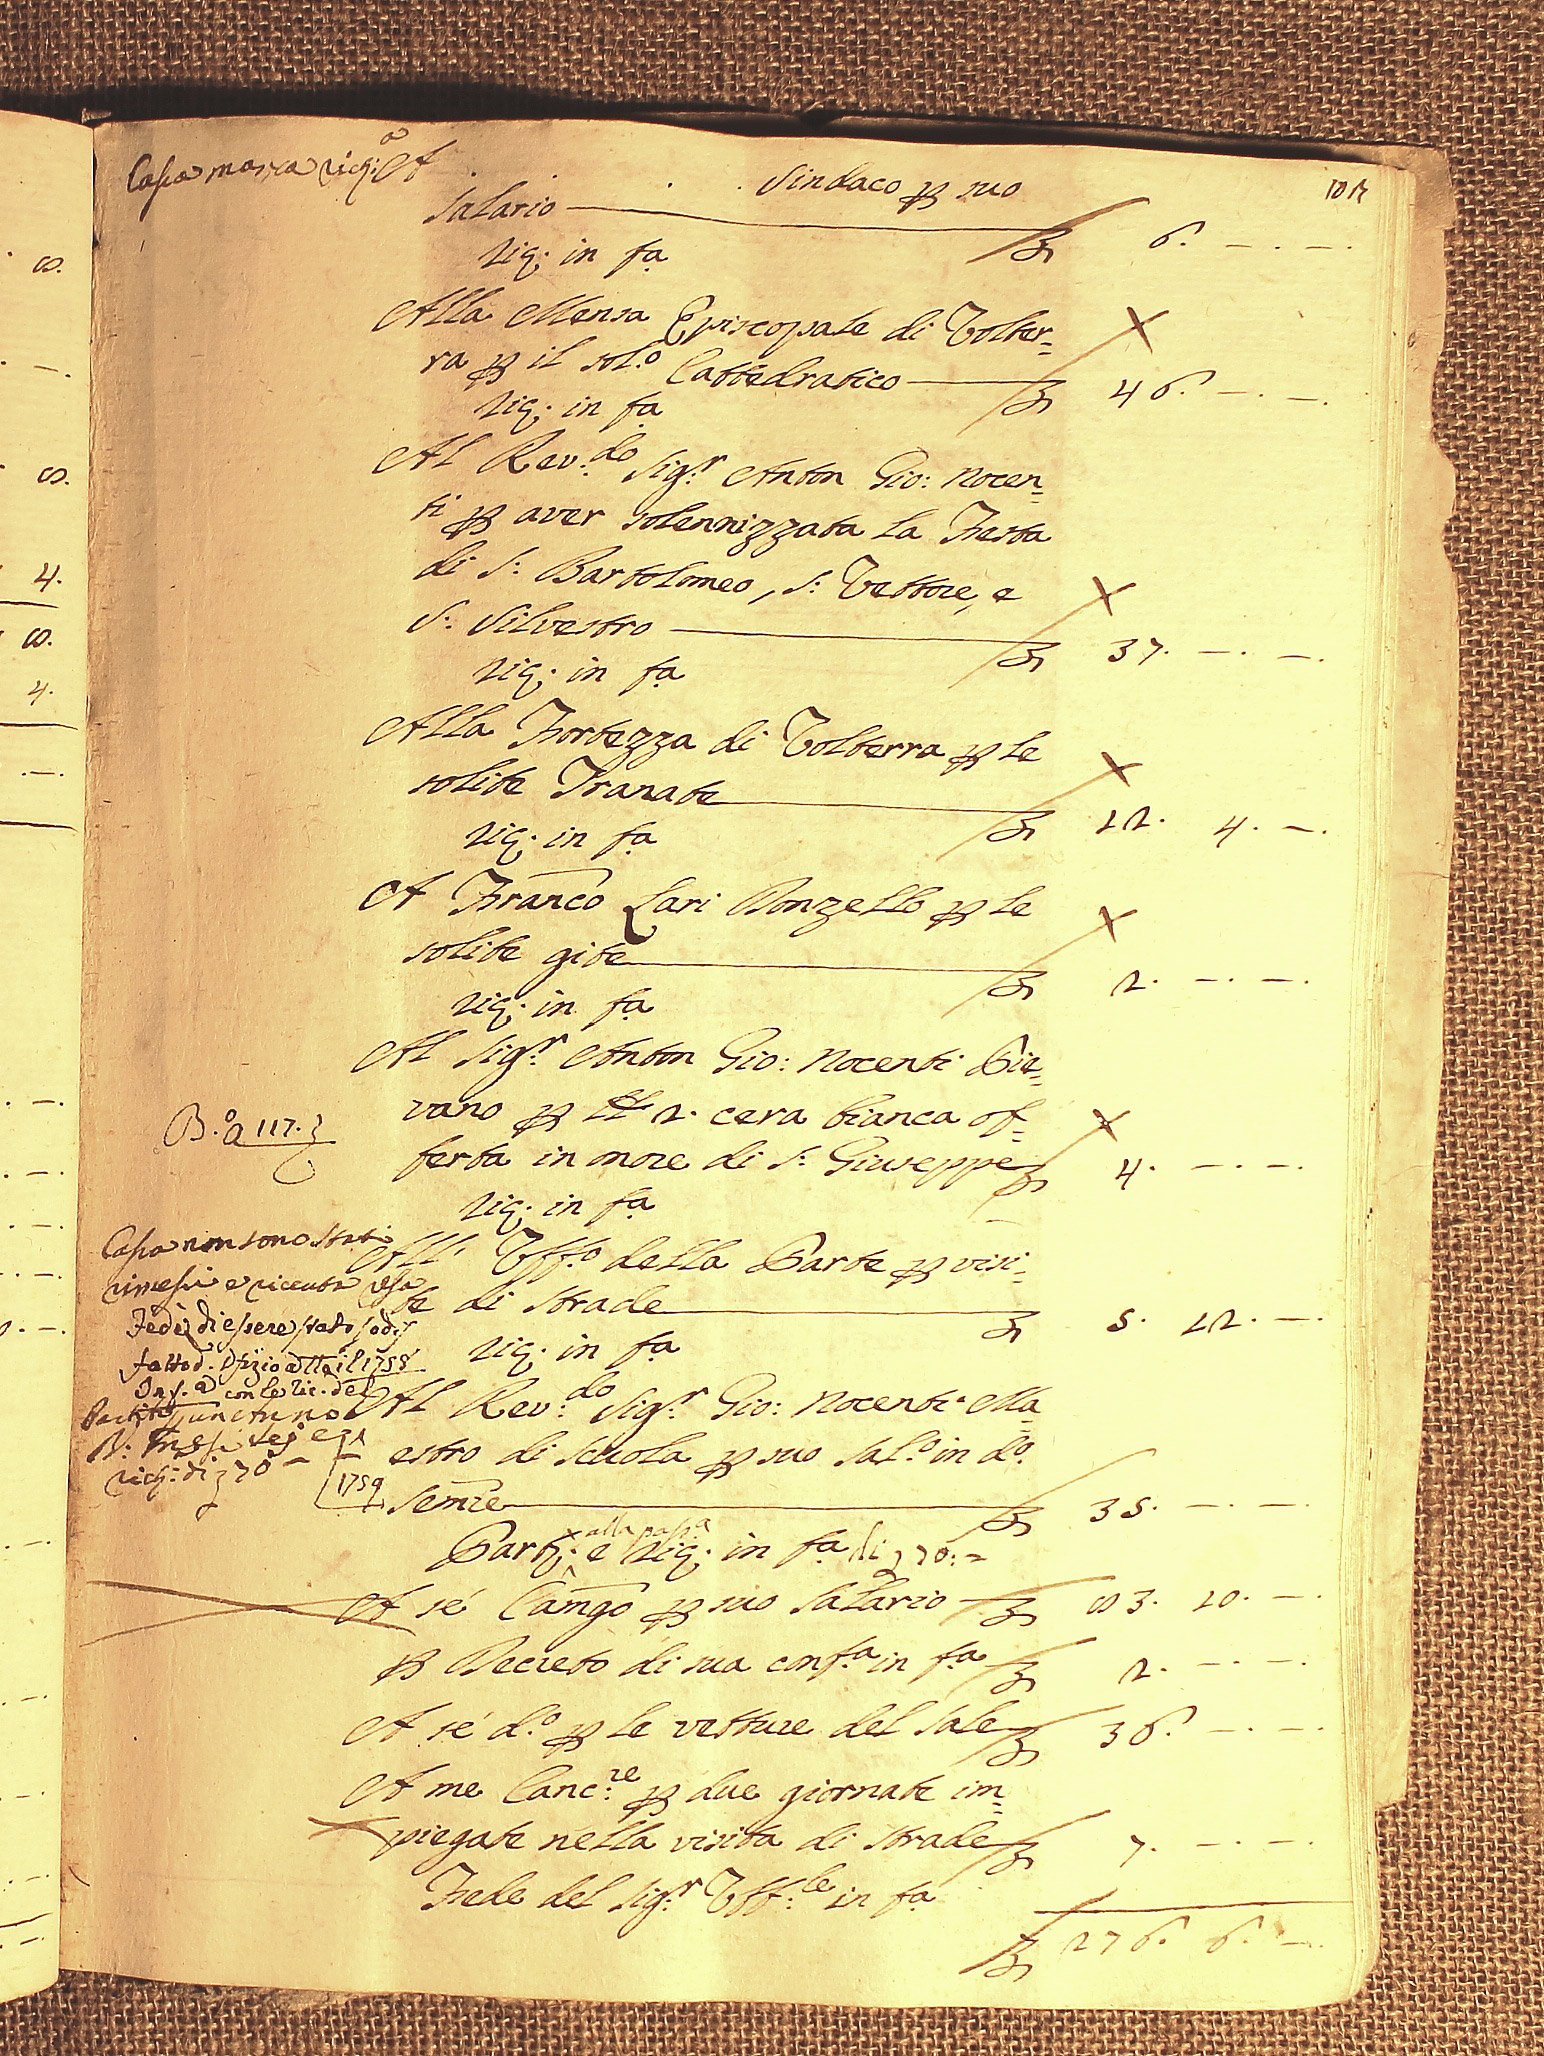 102
Casa manca Ric:a
A . . . Sindaco p suo
salario — 6. —. —.
Ric: in fa
Alla Mensa Episcopale di Volter=
ra p il sol.o Cattedratico — 46. —. —.
Ric: in fa
Al Rev:do Sig:r Anton Gio: Nocen=
ti p aver solennizzata la Festa
di S: Bartolomeo, S: Vettore, e
S: Silvestro — 37. —. —.
Ric: in fa
Alla Fortezza di Volterra p le
solite Tranate — 12. 4. —.
Ric: in fa
A Franco Lari Donzello p le
solite gite — 2. —. —.
Ric: in fa
Al Sig:r Anton Gio: Nocenti Pie=
vano p 2. cera bianca of=
ferta in onore di S: Giuseppe 4. —. —.
Ric: in fa
B.o a 117.
All' Uff.o della Parte p visi=
te di strade — 5. 12. —.
Ric: in fa
Casa non sono stati
rimessi e
Fede di essere stato sodis
fatto d. Ofizio a tto il 1758
con le ric. del
Al Rev:do Sig:r Gio: Nocenti Ma=
estro di scuola p suo sal.o in d.o
Semre — 35. —. —.
ric: di 70 —
1759
Part: e alla pass.a Ric: in fa di 70: =
A sé Camgo p suo salario — 83. 10. —
p Decreto di sua confa in fa — 2. —. —.
A sé d.o p le vetture del sale 36. —. —.
A me Canc:re p due giornate im=
piegate nella visita di strade 7. —. —.
Fede del Sig:r Uff:le in fa
276. 6. —.